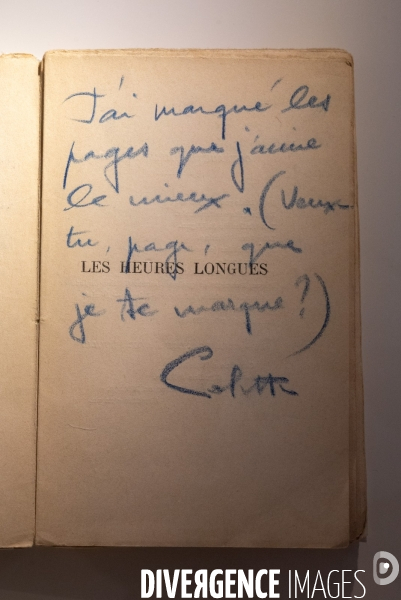 J'ai marqué les
pages que j'aime
le mieux. (Veux-
tu, page, que
LES HEURES LONGUES
je te marque?)
Colette
DIVERGENCE IMAGES